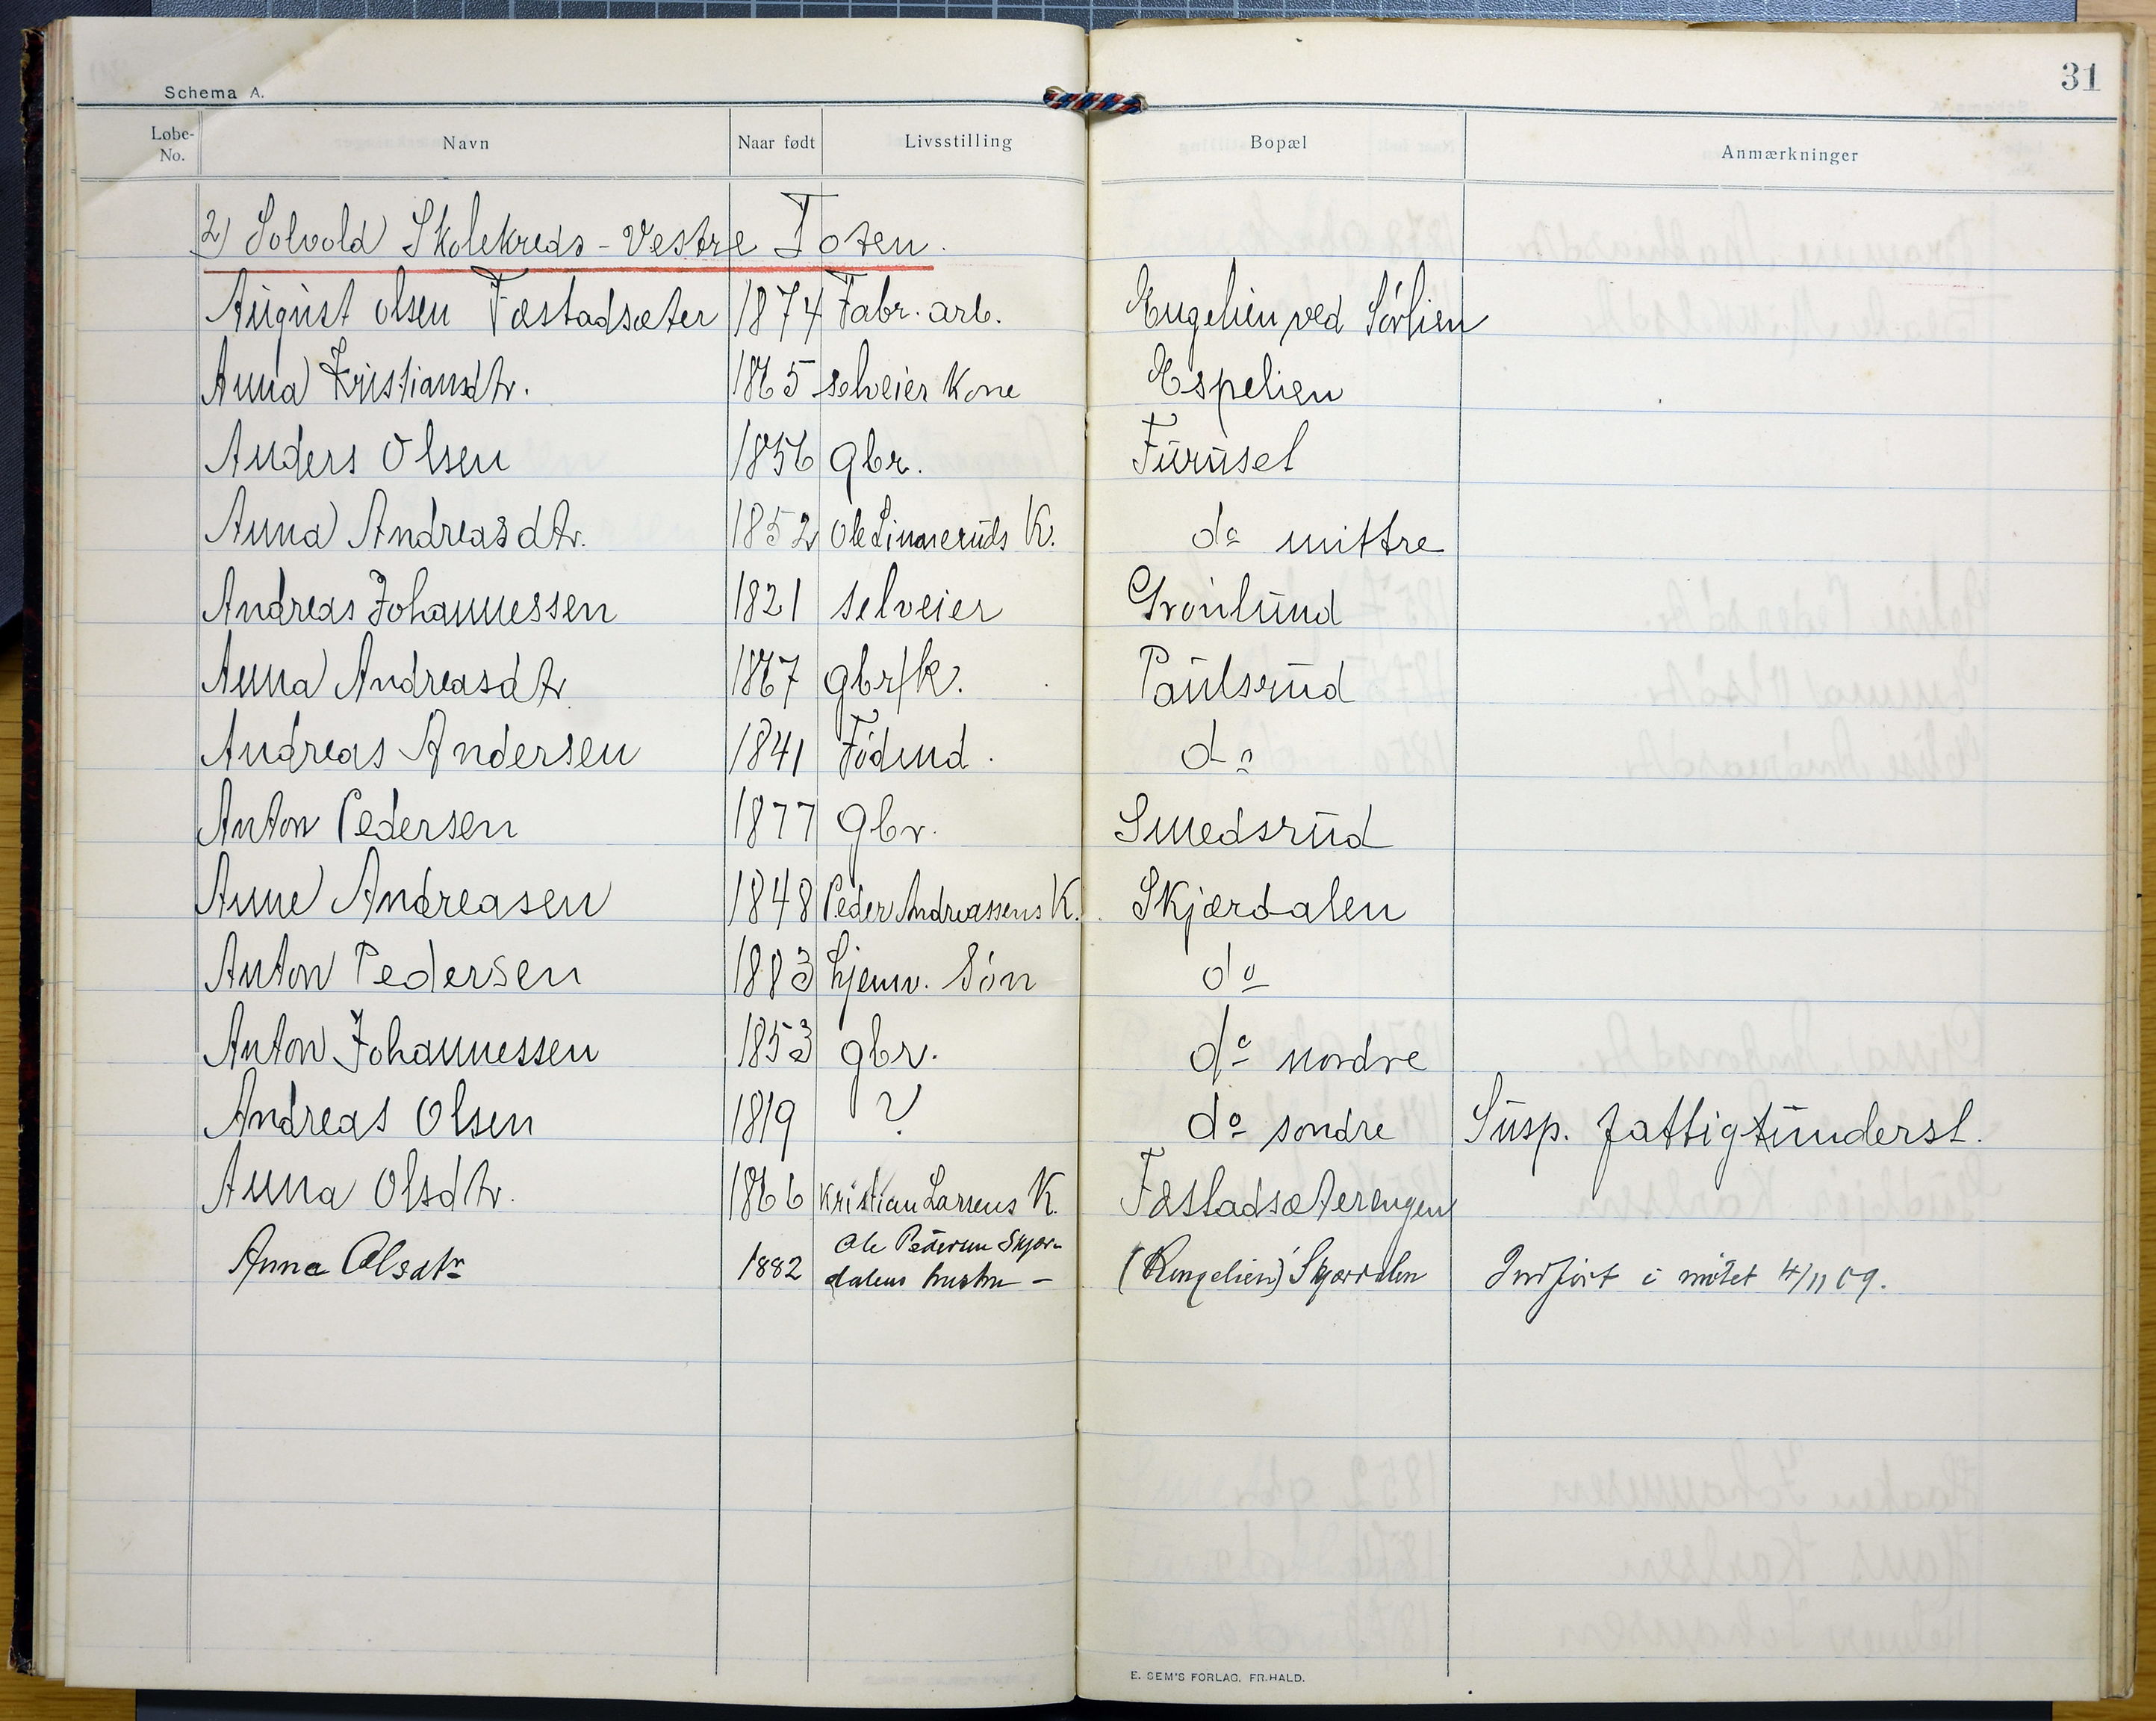 31
Schema A.
Løbe-No. Navn Naar født Livsstilling Bopæl Anmærkninger
2) Solvold Skolekreds - Vestre Toten.
August Olsen Fæstadsæter 1874 Fabr. arb. Engelien ved Sørlien
Anna Kristiansdtr. 1865 selveier Kone Espelien
Anders Olsen 1856 gbr. Furuset
Anna Andreasdtr. 1852 Ole Linneruds K. do mittre
Andreas Johannessen 1821 selveier Grönlund
Anna Andreasdtr 1867 gbr/k. Paulsrud
Andreas Andersen 1841 Födmd. do
Anton Pedersen 1877 gbr. Smedsrud
Anne Andreasen 1848 Peder Andreassens K. Skjærdalen
Anton Pedersen 1883 hjemv. Sön do
Anton Johannessen 1853 gbr. do nordre
Andreas Olsen 1819 ? do sondre Susp. fattigtunderst.
Anna Olsdtr. 1866 Kristian Larsens K. Fæstadsæterengen
Anna Olsdtr 1882 Ole Pedersen Skjær-
dalens hustru - (Rengelien) Skjærdalen Indført i møtet 4/11 09.
E. SEM'S FORLAG, FR.HALD.